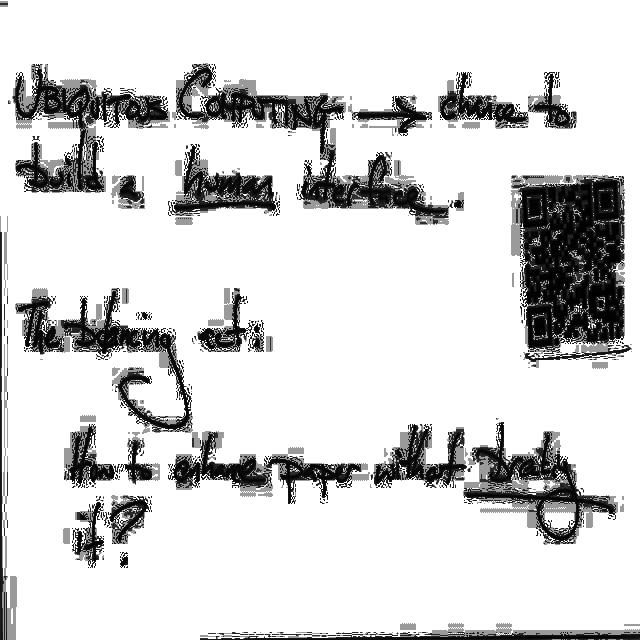 UBIQUITOUS COMPUTING → choice to
build a human interface.
The Dancing act :
How to enhance Paper without Drawing
it ?